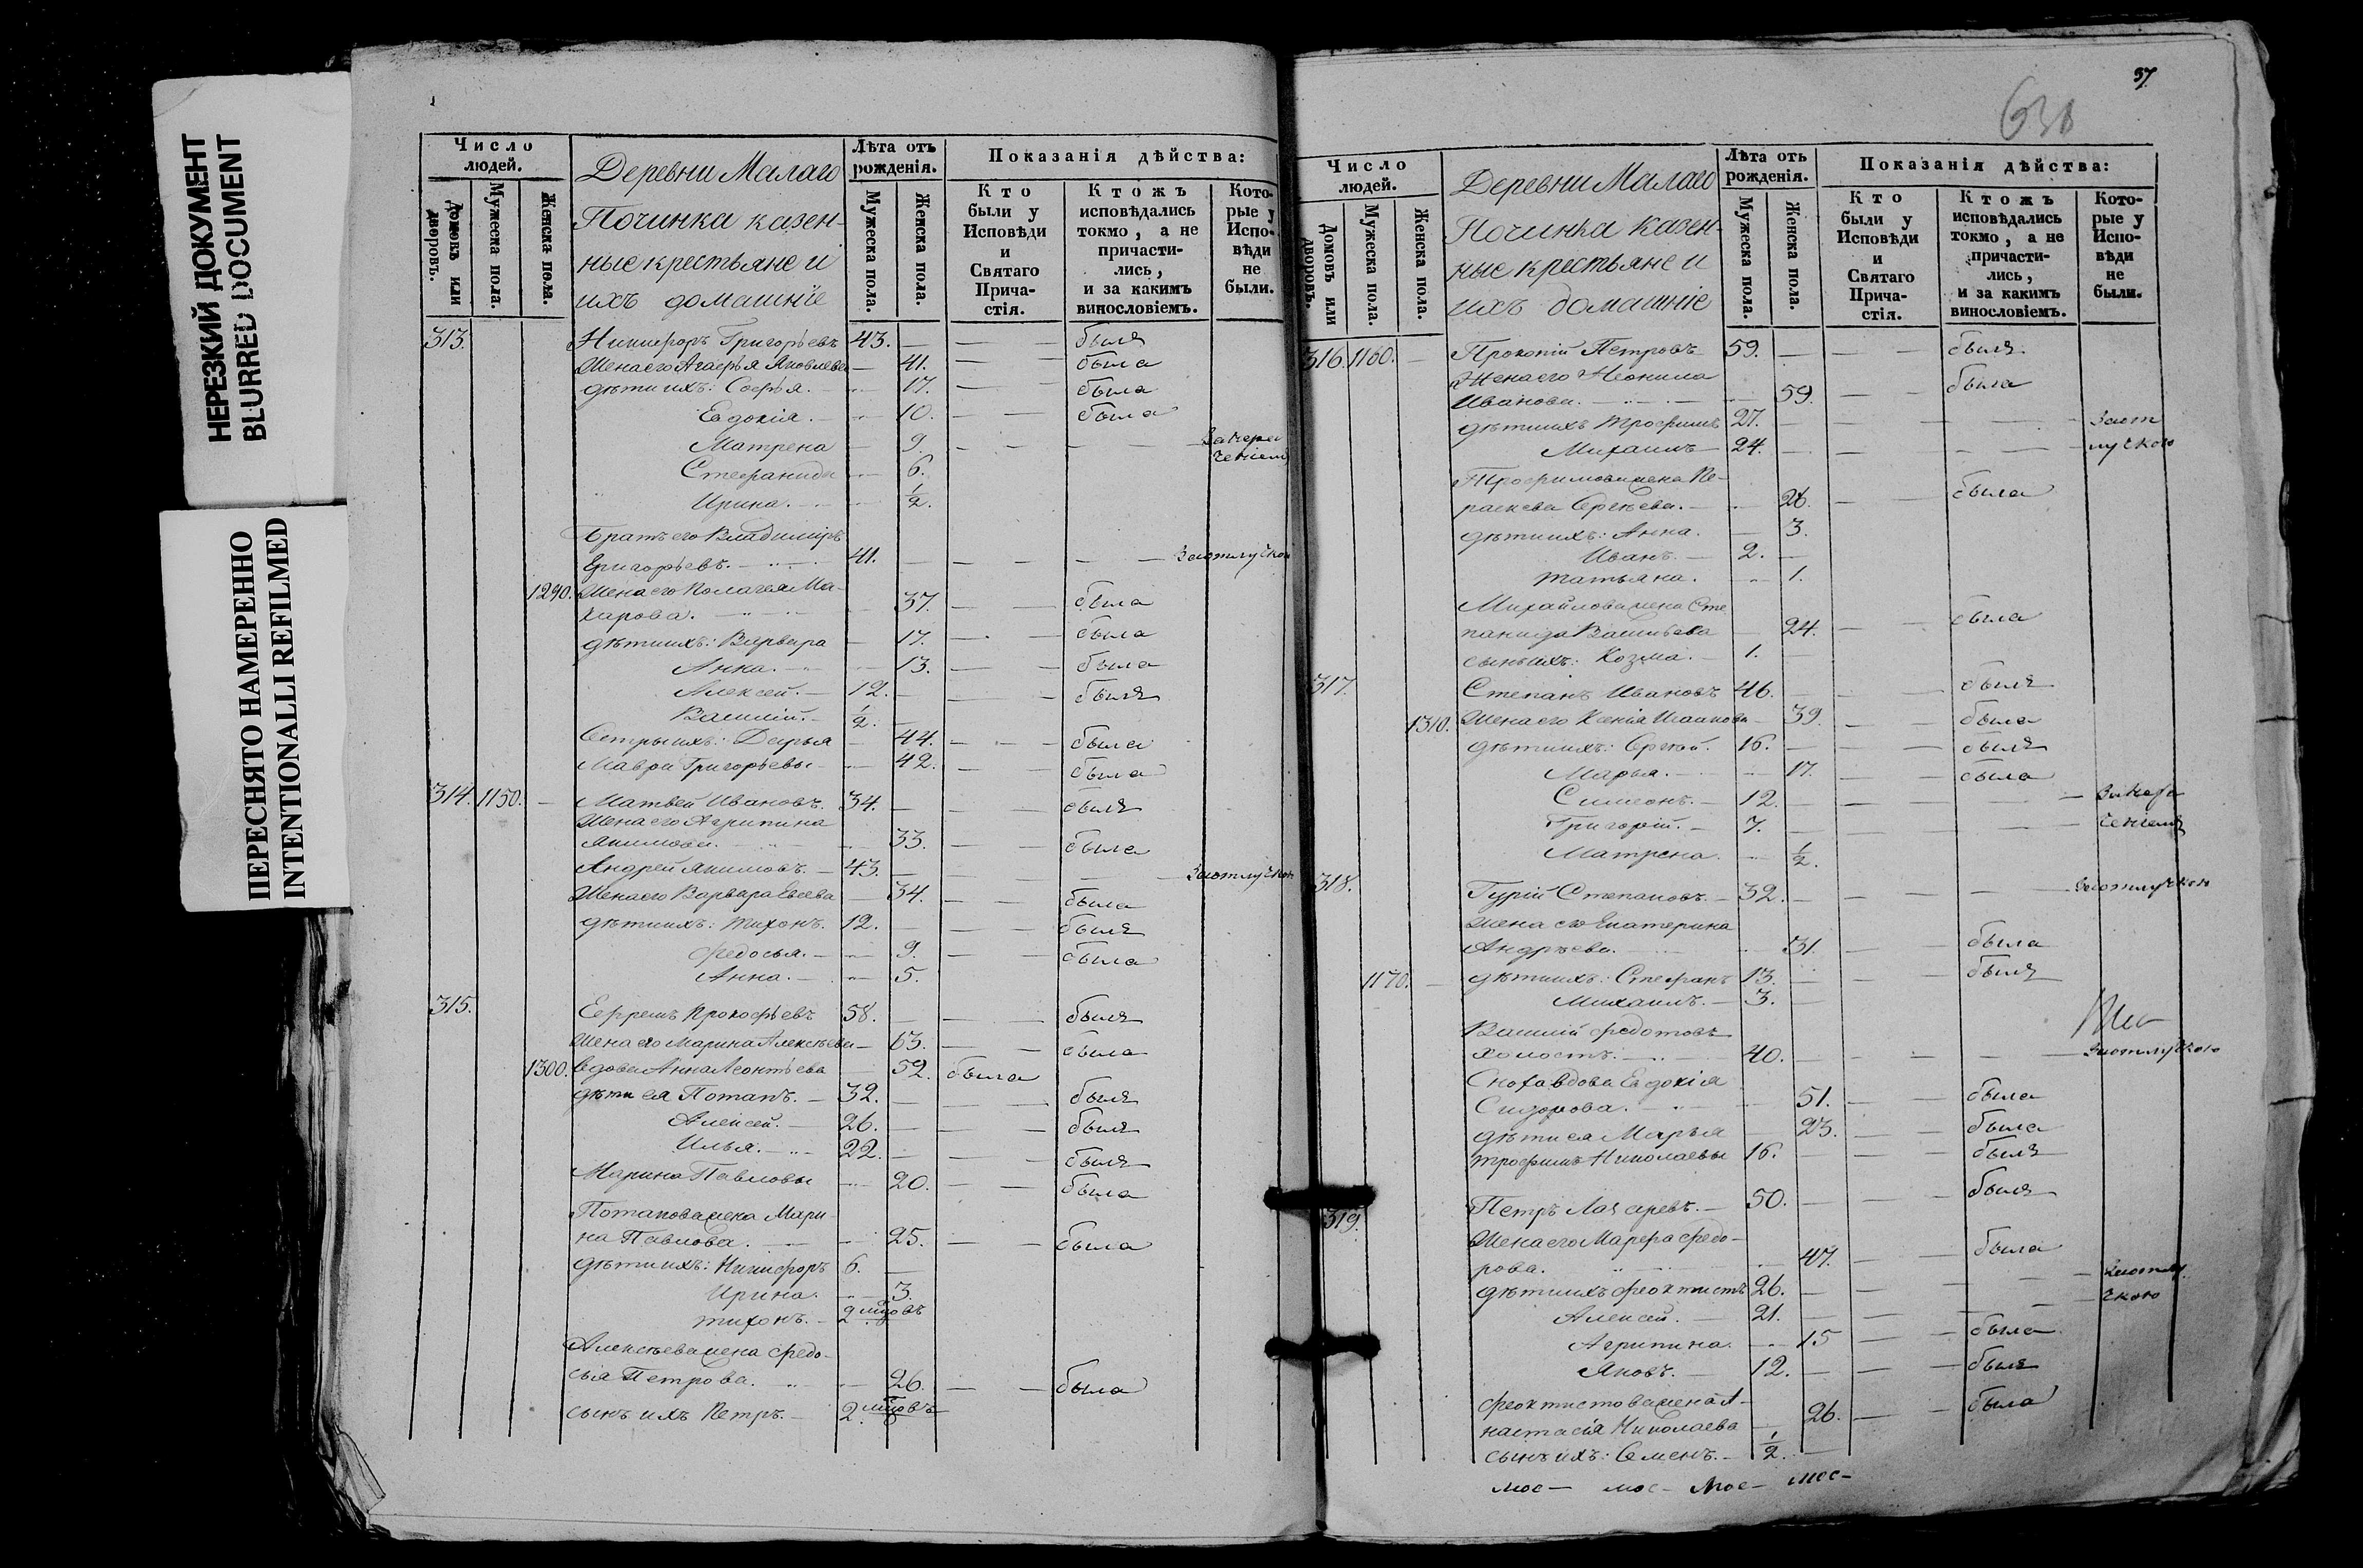 НЕРЕЗКИЙ ДОКУМЕНТ
BLURRED DOCUMENT
ПЕРЕСНЯТО НАМЕРЕННО
INTENTIONALLI REFILMED
Число людей.
Домовъ или дворовъ.
Мужеска пола.
Женска пола.
Деревни Малаго
Починка казен-
ные крестьяне и
ихъ домашніе
Лѣта отъ рожденія.
Мужеска пола.
Женска пола.
Показанія дѣйства:
Кто были у Исповѣди и Святаго Прича-стія.
Ктожъ исповѣдались токмо, а не причасти-лись, и за какимъ винословіемъ.
Кото-рые у Испо-вѣди не были.
313. Никифоръ Григорьевъ 43. — — — былъ
Жена его Агафья Яковлева — 41. — — была
дѣти ихъ: Софья. — 17. — была
Евдокія. — 10. — — была
Матрена — 9. — — — — За мало
Стефанида — 6.
Ирина. — 1/2.
Братъ его Владимиръ
Григорьевъ. — 41. — — — — — За отлучкою
1290. Жена его Пелагея Ма-
карова. — 37. — — была
дѣти ихъ: Варвара — 17. — — была
Анна. — 13. — — была
Алексей. — 12. — — — былъ
Василій. — 1/2. —
Сестры ихъ: Дарья — 44. — — — была
Мавра Григорьевы — 42. — — была
314. 1150. — Матвей Ивановъ. 34. — — — былъ
Жена его Агрипина
Якимова. — 33. — — была
Андрей Якимовъ. — 43. — — — — — За отлучкою
Жена его Варвара Евсева — 34. — — была
дѣти ихъ: Тихонъ. 12. — — — былъ
Федосья. — 9. — — была
Анна. — 5.
315. Ефремъ Прокофьевъ 58. — — — былъ
Жена его Марина Алексѣева — 63. — — была
1300. Вдова Анна Леонтьева — 52. была
дѣти ея Потапъ. — 32. — — — былъ
Алексей. — 26. — — — былъ
Илья. — 22. — — — былъ
Марина Павловы — 20. — — была
Потапова жена Мари-
на Павлова. — 25. — — была
дѣти ихъ: Никифоръ 6. —
Ирина. — 3.
Тихонъ. — 2 мѣсяцовъ
Алексѣева жена Федо-
сья Петрова. — 26. — — была
сынъ ихъ Петръ. — 2. мѣсяцовъ
37
638
Число людей.
Домовъ или дворовъ.
Мужеска пола.
Женска пола.
Деревни Малаго
Починка казен-
ные крестьяне и
ихъ домашніе
Лѣта отъ рожденія.
Мужеска пола.
Женска пола.
Показанія дѣйства:
Кто были у Исповѣди и Святаго Прича-стія.
Ктожъ исповѣдались токмо, а не причасти-лись, и за какимъ винословіемъ.
Кото-рые у Испо-вѣди не были.
316. 1160. — Прокопій Петровъ 59. — — — былъ
Жена его Неонила
Иванова. — 59. — — была
дѣти ихъ Трофимъ 27. — — — — За от
Михаилъ — 24. — — — — лучкою
Трофимова жена Пе-
раскева Сергѣева. — 26. — — была
дѣти ихъ: Анна. — 3.
Иванъ. — 2. —
Татьяна. — 1.
Михайлова жена Сте
панида Васильева — 24. — — была
сынъ ихъ: Козма. — 1. —
317. Степанъ Ивановъ 46. — — — былъ
1310. Жена его Ксенія Исаакова — 39. — — была
дѣти ихъ: Сергей. 16. — — — былъ
Марья. — 17. — — была
Симеонъ. — 12. — — — —
Григорій. — 7. — — — —
Матрена. — 1/2.
318. Гурій Степановъ. — 32. — — — — За отлучкою
Жена его Екатерина
Андрѣева. — 31. — — была
1170. — дѣти ихъ: Стефанъ 13. — — — былъ
Михаилъ. — 3. —
Василій Федотовъ
холостъ. — 40. — — — — За отлучкою
Сноха вдова Евдокія
Сидорова. — 51. — — была
дѣти ея Марья — 23. — — была
Трофимъ Николаевы 16. — — — былъ
319. Петръ Лазаревъ. — 50. — — — былъ
Жена его Марфа Федо-
рова. — 47. — — была
дѣти ихъ Феоктистъ 26. — — — — За отлу
Алексей. — 21. — — — — чкою
Агрипина. — 15 — — была
Яковъ. — 12. — — — былъ
Феоктистова жена А-
настасія Николаева — 26. — — была
сынъ ихъ: Семенъ. — 1/2. —